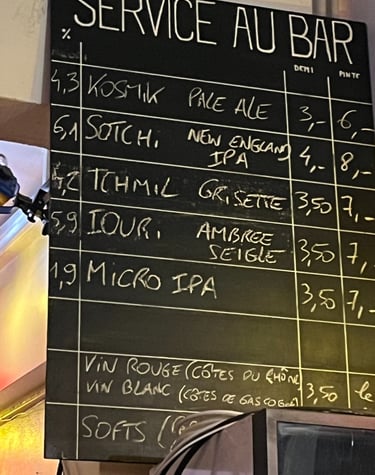 SERVICE AU BAR
% DEMI PINTE
4,3 KOSMIK PALE ALE 3,- 6,
6,1 SOTCHI NEW ENGLAND IPA 4,- 8,-
4,2 TCHMIL GRISETTE 3,50 7,-
5,9 IOURI AMBREE SEIGLE 3,50 7,
1,9 MICRO IPA 3,50 7,-
VIN ROUGE (CÔTES DU RHÔNE
VIN BLANC (CÔTES DE GASCOGNE) 3,50 le
SOFTS (